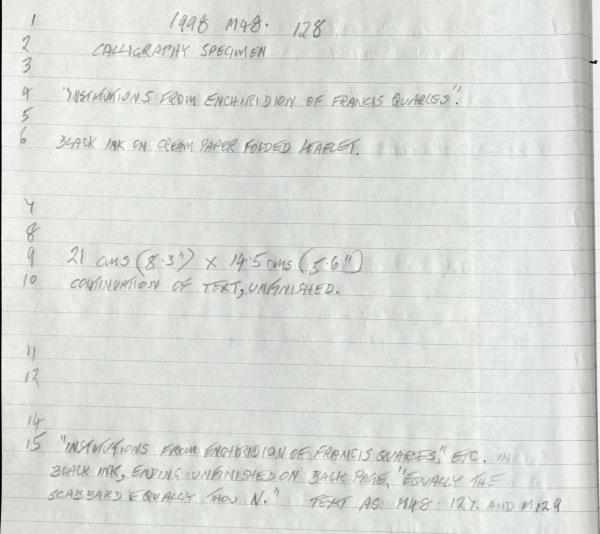 1 1998 M48. 128
2 CALLIGRAPHY SPECIMEN
3
4 "INSTITUTIONS FROM ENCHIRIDION OF FRANCIS QUARLES".
5
6 BLACK INK ON CREAM PAPER FOLDED LEAFLET.
7
8
9 21 cms (8.3") x 14.5 cms (5.6")
10 CONTINUATION OF TEXT, UNFINISHED.
11
12
14
15 "INSTITUTIONS FROM ENCHIRIDION OF FRANCIS QUARLES," ETC. IN
BLACK INK, ENDING UNFINISHED ON BACK PAGE, "EQUALLY THE
SCABBARD EQUALLY THOU N." TEXT AS M48. 127. AND M129